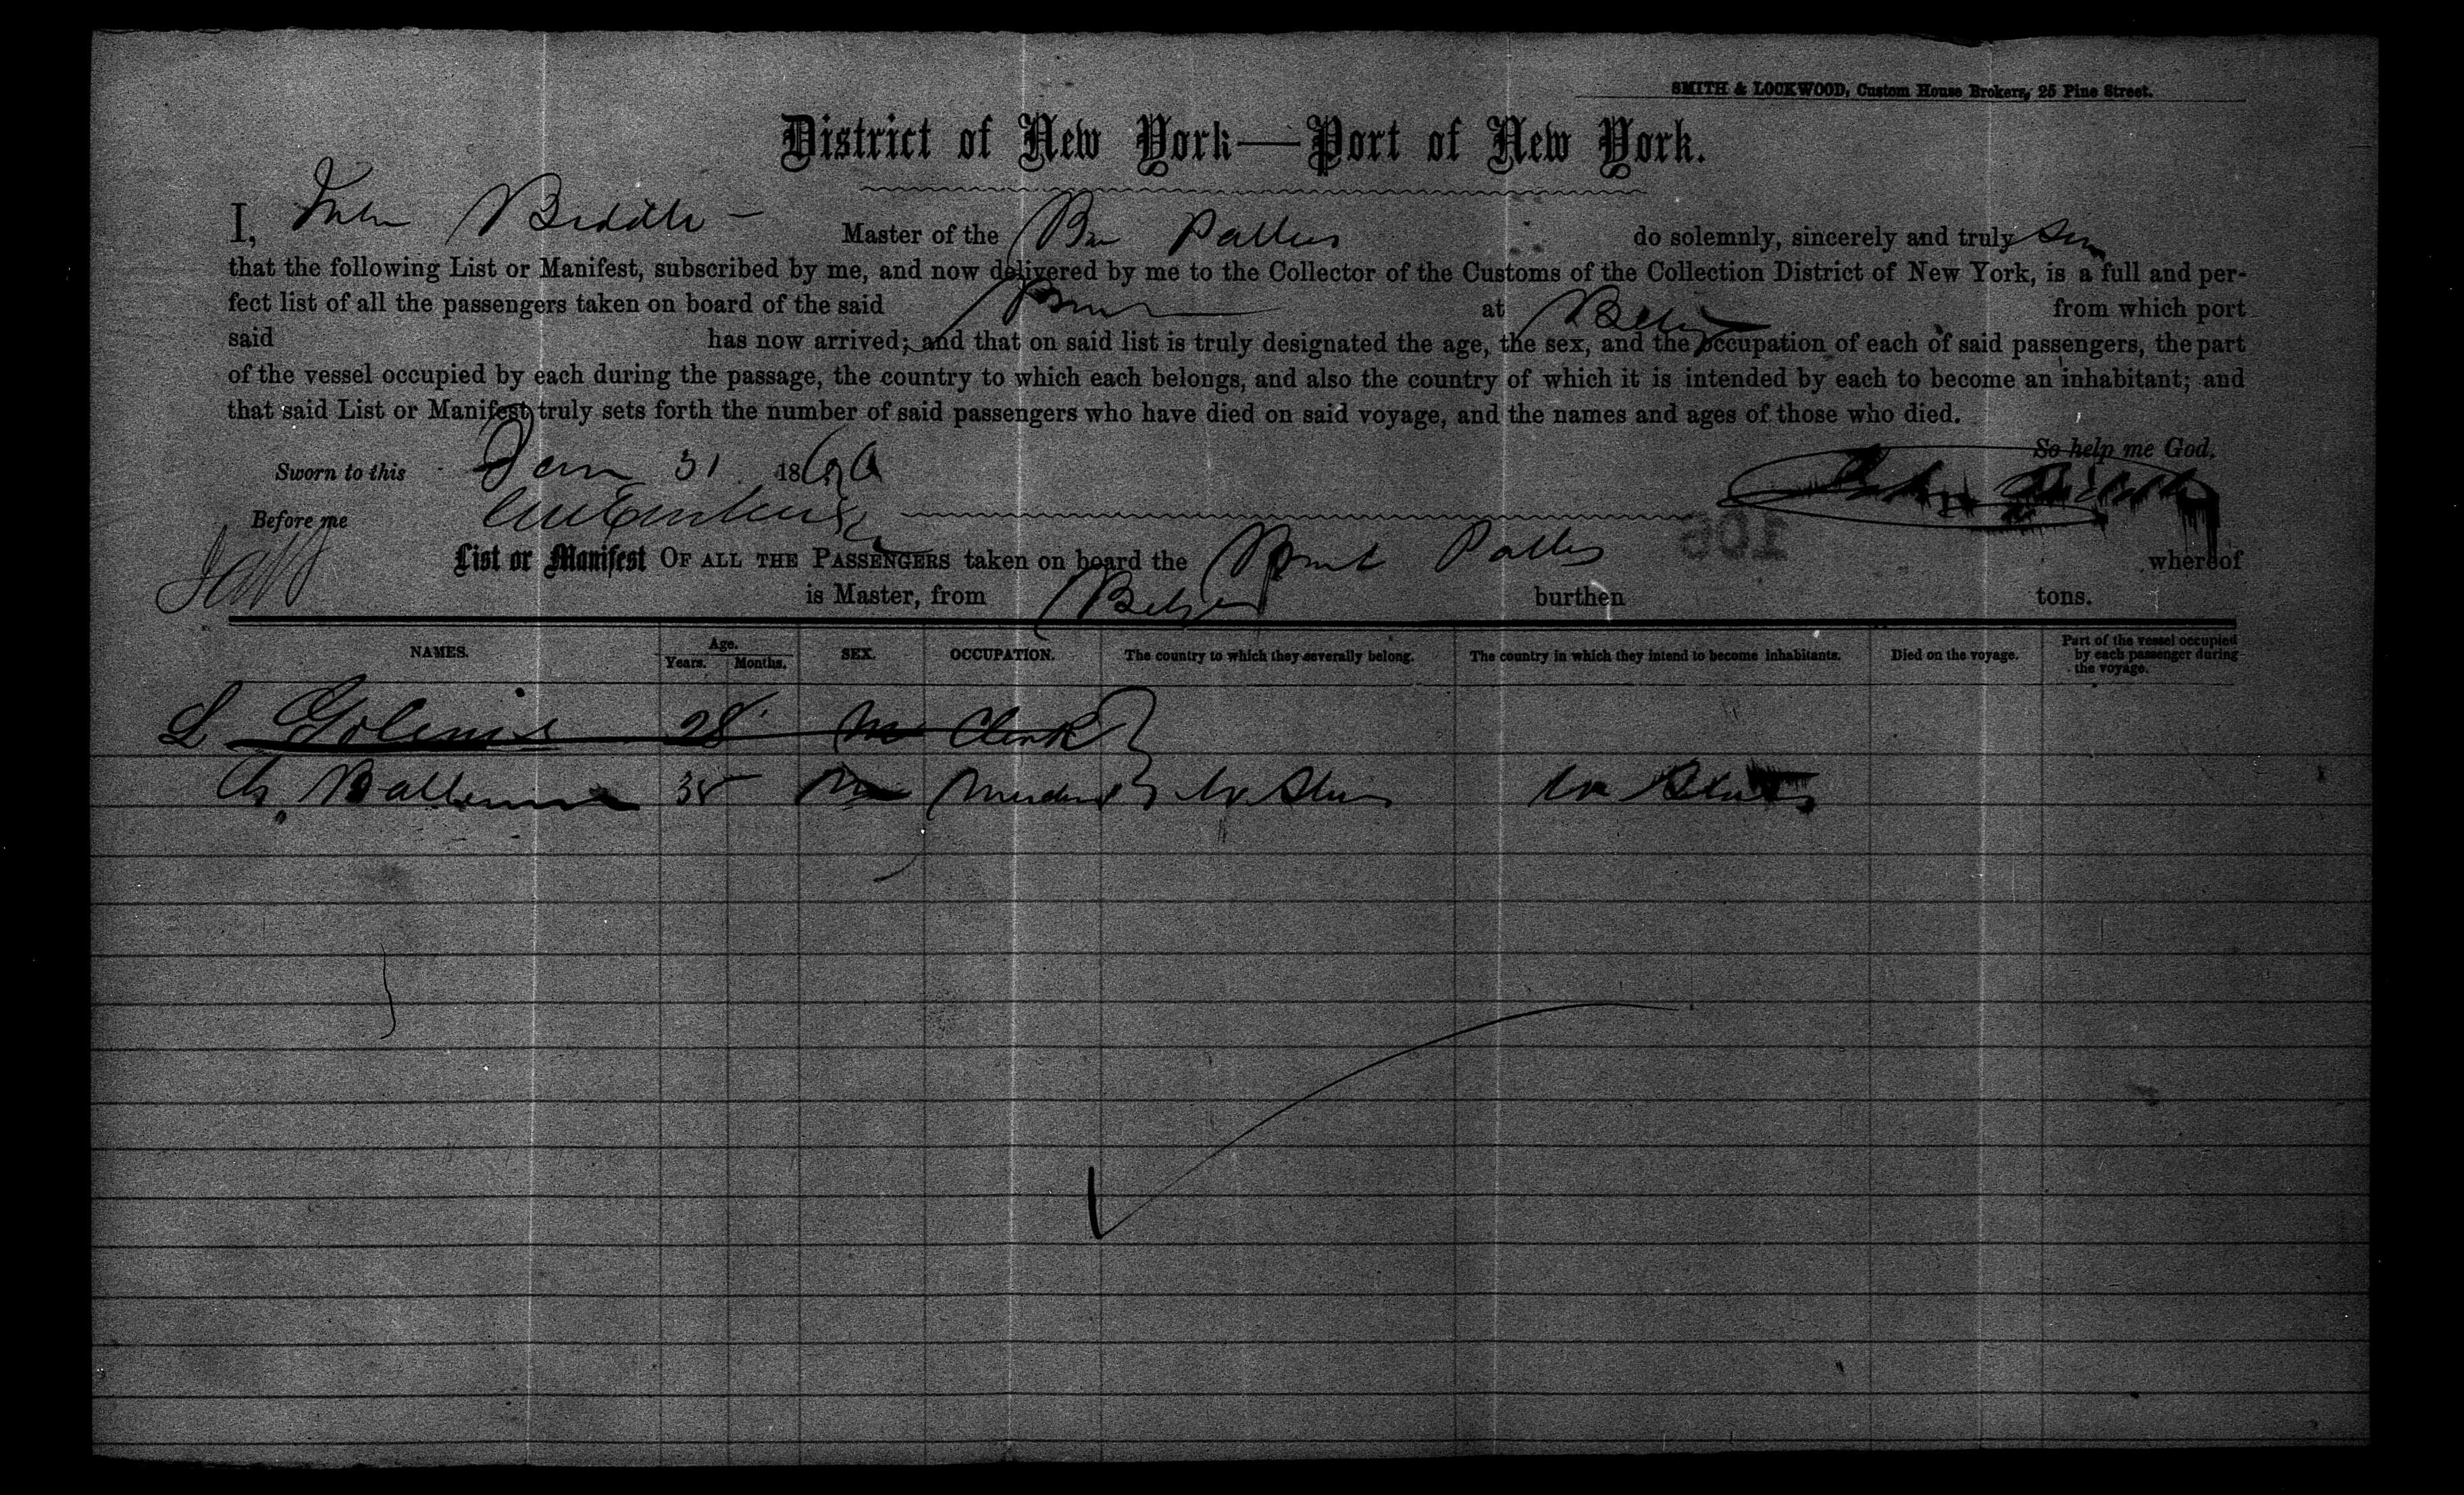 SMITH & LOCKWOOD, Custom House Brokers, 25 Pine Street.
District of New York—Port of New York.
I, John Biddle — Master of the Br Pallas do solemnly, sincerely and truly
that the following List or Manifest, subscribed by me, and now delivered by me to the Collector of the Customs of the Collection District of New York, is a full and per-
fect list of all the passengers taken on board of the said at from which port
said has now arrived; and that on said list is truly designated the age, the sex, and the occupation of each of said passengers, the part
of the vessel occupied by each during the passage, the country to which each belongs, and also the country of which it is intended by each to become an inhabitant; and
that said List or Manifest truly sets forth the number of said passengers who have died on said voyage, and the names and ages of those who died.
So help me God.
Sworn to this Jan 31 1866
Before me
106
List or Manifest OF ALL THE PASSENGERS taken on board the Pallas whereof
is Master, from burthen tons.
NAMES. Age. Years. Months. SEX. OCCUPATION. The country to which they severally belong. The country in which they intend to become inhabitants. Died on the voyage. Part of the vessel occupied by each passenger during the voyage.
L 28 M Clerk
35 M